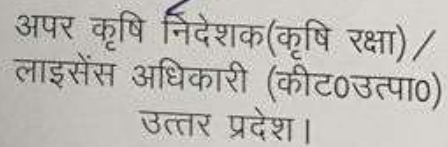 अपर कृषि निदेशक(कृषि रक्षा)/
लाइसेंस अधिकारी (कीट0उत्पा0)
उत्तर प्रदेश।